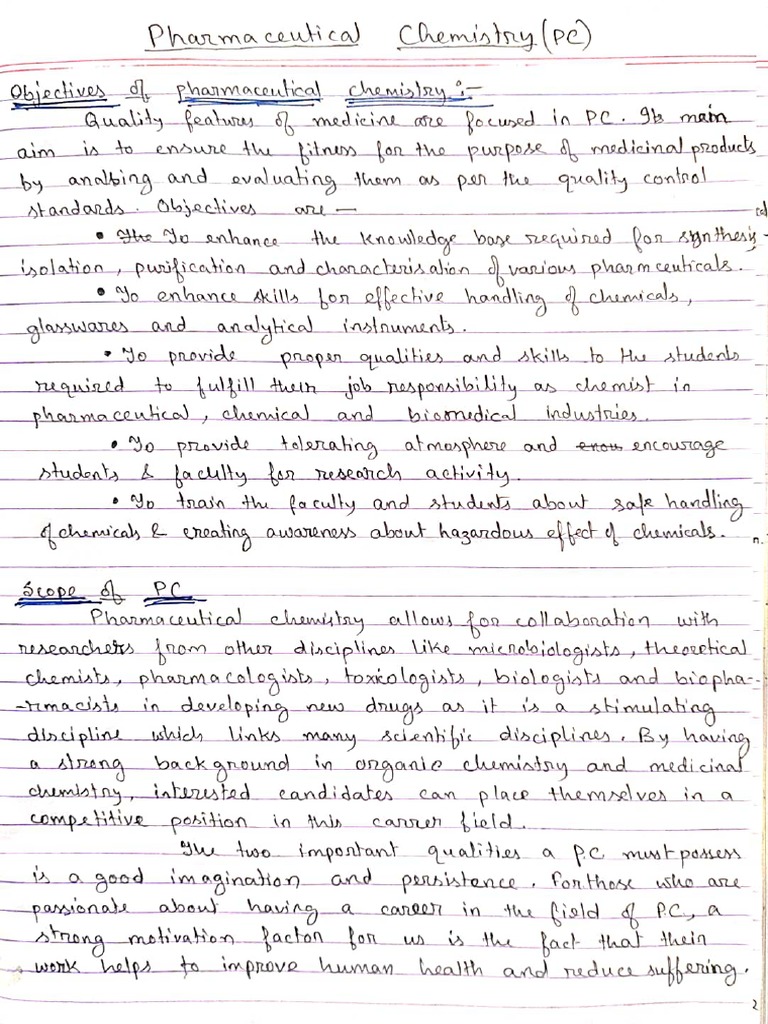 Pharmaceutical Chemistry (PC)
Objectives of pharmaceutical chemistry :-
Quality features of medicine are focused in PC. Its main
aim is to ensure the fitness for the purpose of medicinal products
by analbing and evaluating them as per the quality control
standards. Objectives are —
• The To enhance the knowledge base required for synthesis
isolation, purification and characterisation of various pharmceuticals.
• To enhance skills for effective handling of chemicals,
glasswares and analytical instruments.
• To provide proper qualities and skills to the students
required to fulfill their job responsibility as chemist in
pharmaceutical, chemical and biomedical industries.
• To provide tolerating atmosphere and encourage
students & faculty for research activity.
• To train the faculty and students about safe handling
of chemicals & creating awareness about hazardous effect of chemicals.
Scope of PC
Pharmaceutical chemistry allows for collaboration with
researchers from other disciplines like microbiologists, theoretical
chemists, pharmacologists, toxicologists, biologists and biopha-
-rmacists in developing new drugs as it is a stimulating
discipline which links many scientific disciplines. By having
a strong background in organic chemistry and medicinal
chemistry, interested candidates can place themselves in a
competitive position in this carrer field.
The two important qualities a P.C must possess
is a good imagination and persistence. For those who are
passionate about having a career in the field of P.C, a
strong motivation factor for us is the fact that their
work helps to improve human health and reduce suffering.
2